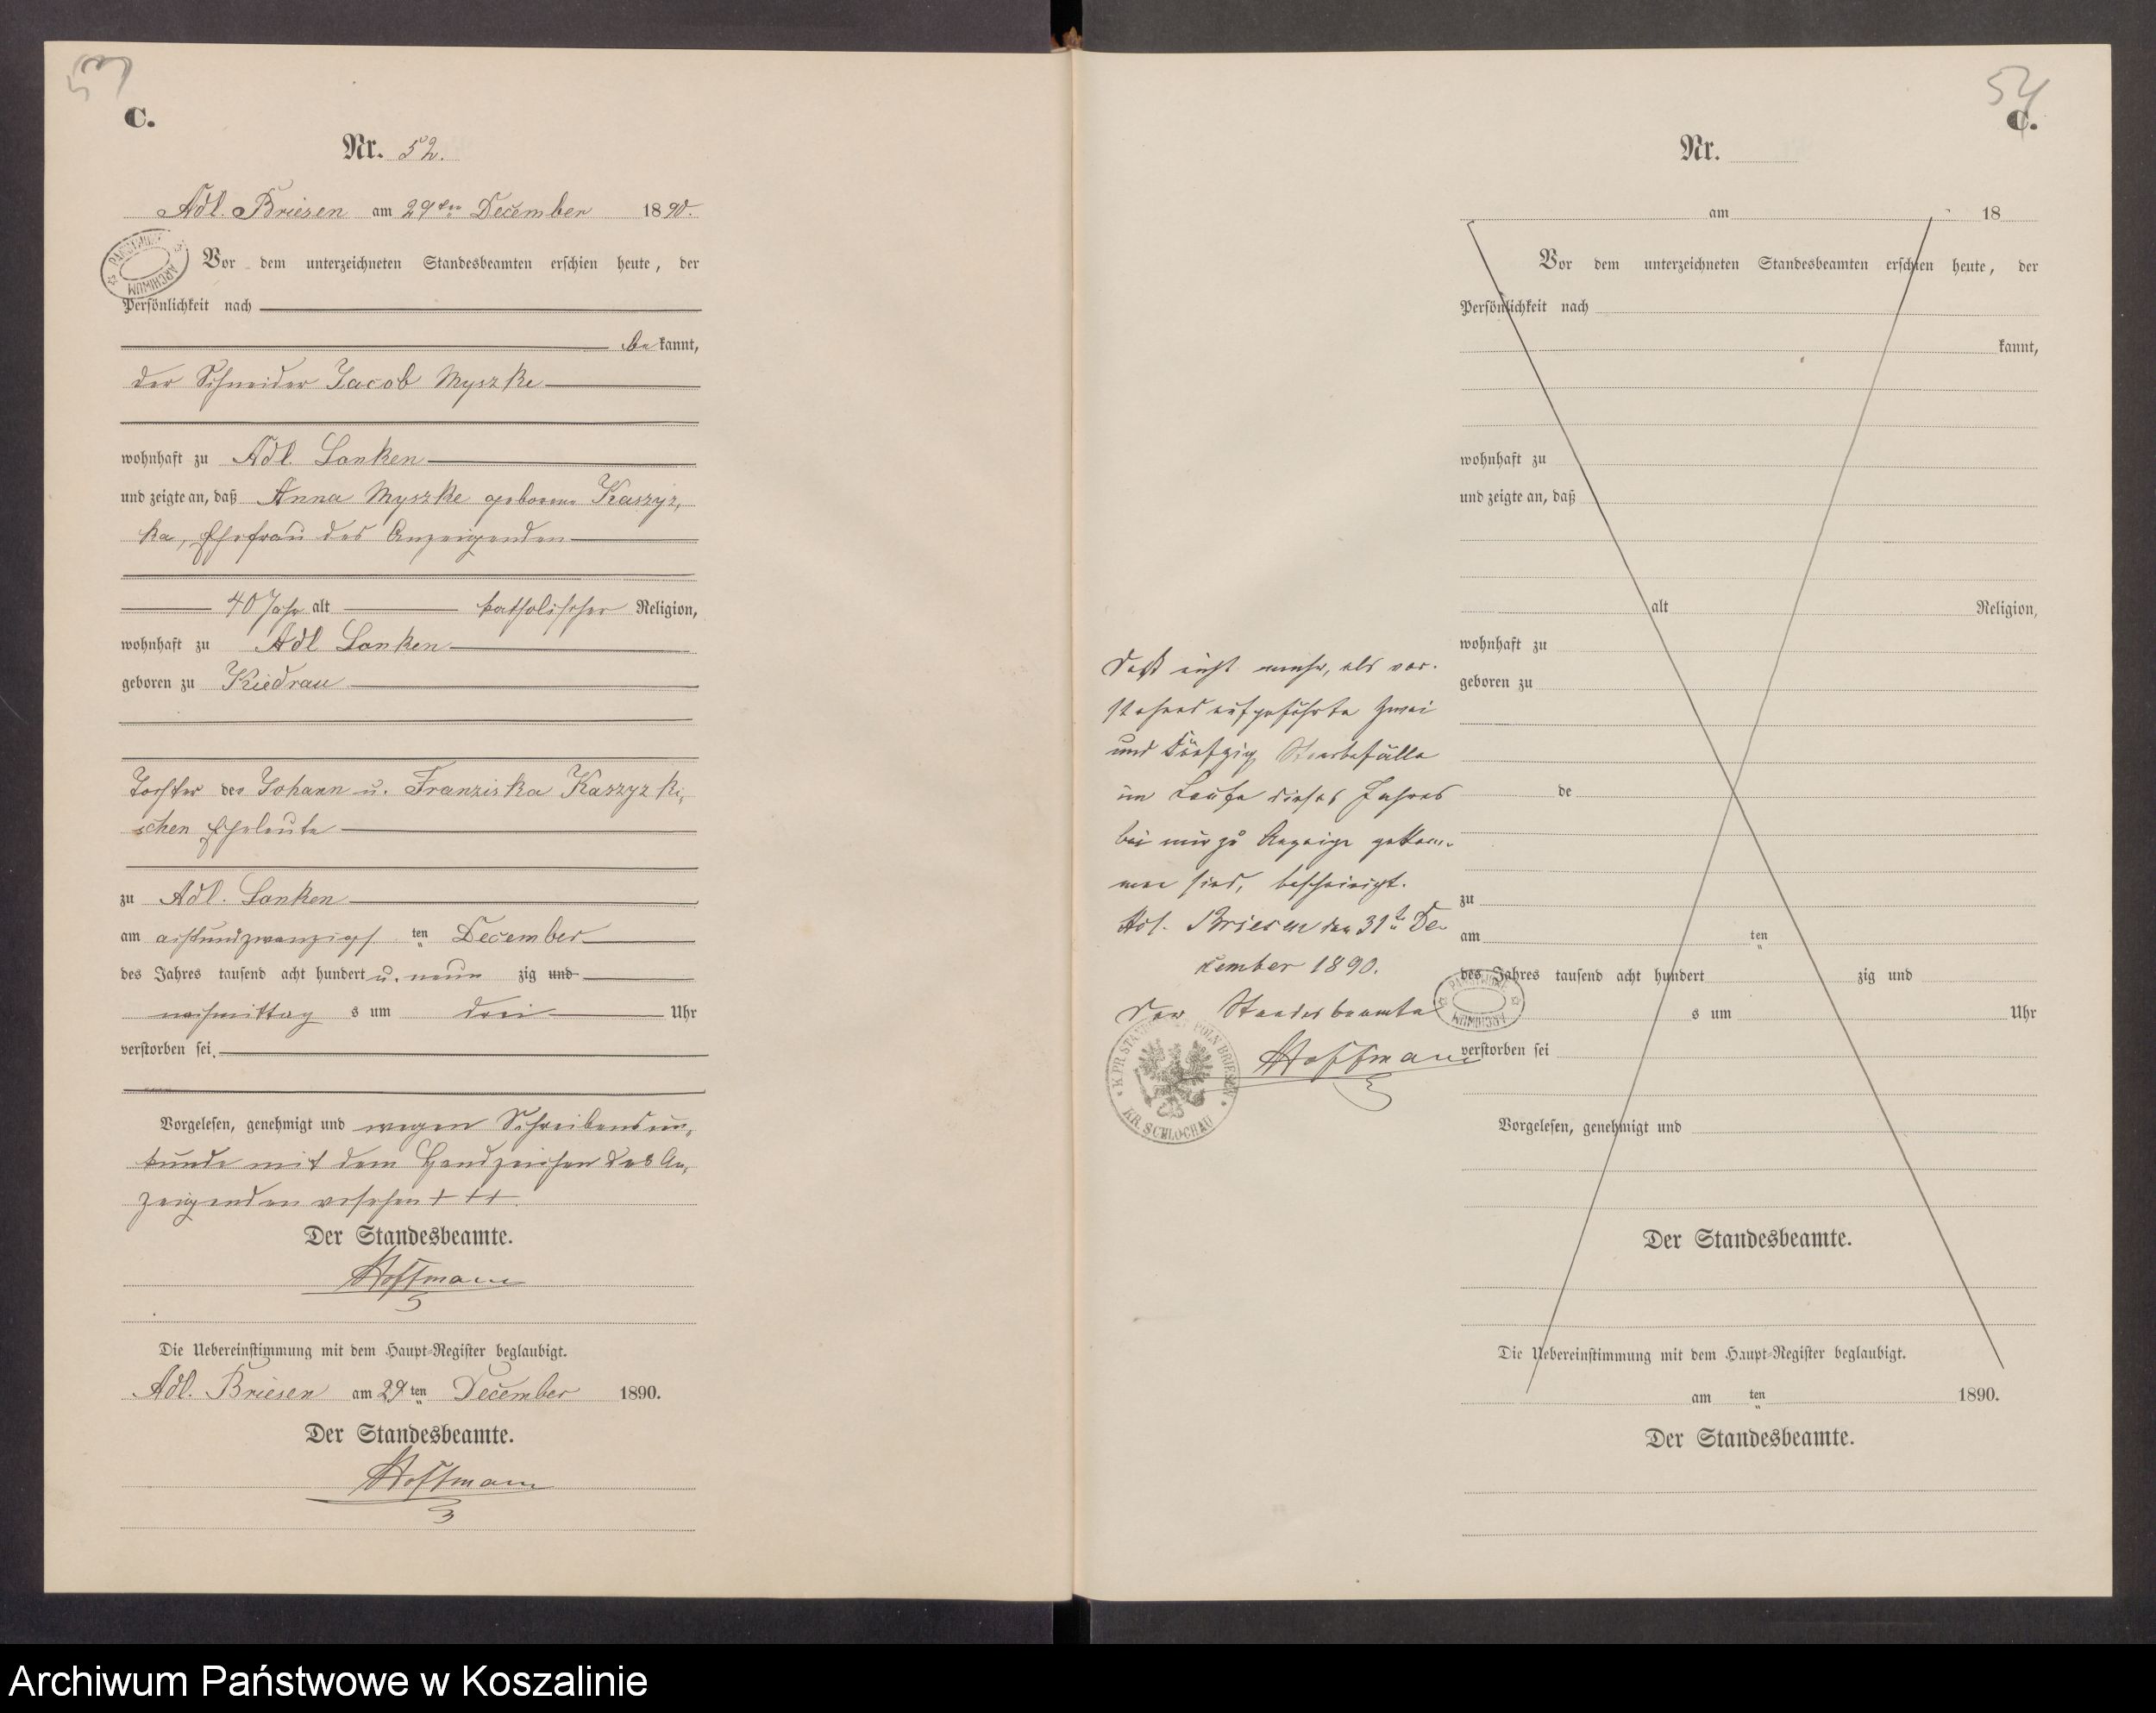 53
C.
Nr. 52.
Adl. Briesen am 29ten December 1890.
Vor dem unterzeichneten Standesbeamten erschien heute, der
Persönlichkeit nach
bekannt,
der Schneider Jacob Myszke
wohnhaft zu Adl. Lanken
und zeigte an, daß Anna Myszke geborene Kaszyz,
ka, Ehefrau des Anzeigenden
40 Jahr alt katholischer Religion,
wohnhaft zu Adl Lanken
geboren zu Kiedrau
Tochter der Johann u. Franziska Kaszyzki,
schen Eheleute
zu Adl. Lanken
am achtundzwanzigst ten December
des Jahres tausend acht hundert u. neun zig und
nachmittag s um drei Uhr
verstorben sei.
Vorgelesen, genehmigt und wegen Schreibensun,
kunde mit dem Handzeichen des An,
zeigenden versehen + + +.
Der Standesbeamte.
Hoffmann
Die Uebereinstimmung mit dem Haupt-Register beglaubigt.
Adl. Briesen am 29ten December 1890.
Der Standesbeamte.
Hoffmann
PAŃSTWOWE ARCHIWUM
54
C.
Nr.
am 18
Vor dem unterzeichneten Standesbeamten erschien heute, der
Persönlichkeit nach
kannt,
wohnhaft zu
und zeigte an, daß
alt Religion,
wohnhaft zu
geboren zu
de
zu
am ten
des Jahres tausend acht hundert zig und
s um Uhr
verstorben sei
Vorgelesen, genehmigt und
Der Standesbeamte.
Die Uebereinstimmung mit dem Haupt-Register beglaubigt.
am ten 1890.
Der Standesbeamte.
Daß nicht mehr, als vor-
stehend aufgeführte zwei
und fünfzig Sterbefälle
im Laufe dieses Jahres
bei mir zu Anzeige gekom-
men sind, bescheinigt.
Adl. Briesen den 31t De-
cember 1890.
Der Standesbeamte
Hoffmann
PAŃSTWOWE ARCHIWUM
K. PR. STANDESAMT POLN BRIESEN
KR. SCHLOCHAU
Archiwum Państwowe w Koszalinie